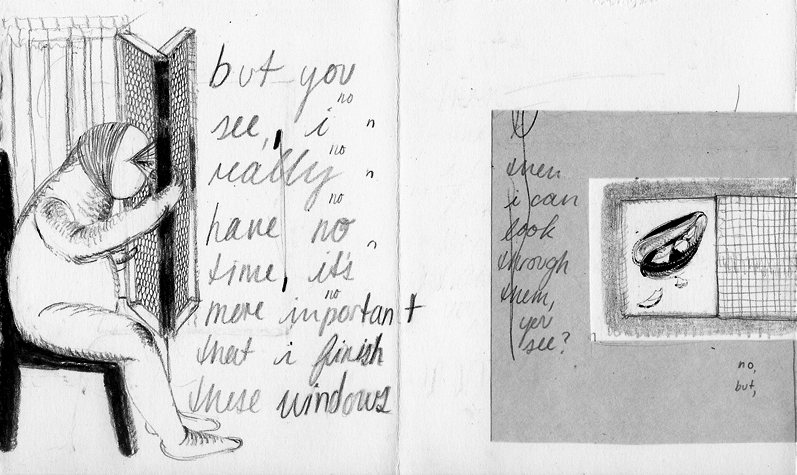 but you
no
see, i n
no
really n
no
have no
n
time, it's
no
more inportant
that i finish
these windows
then
i can
look
through
them,
you
see?
no,
but,